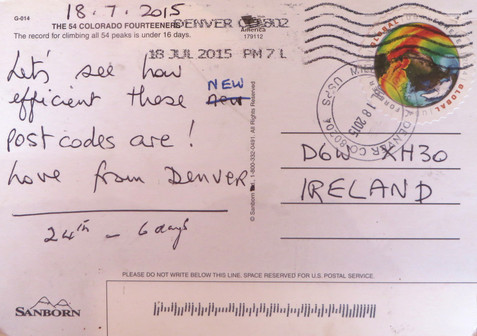 18.7.2015
G-014
THE 54 COLORADO FOURTEENERS
The record for climbing all 54 peaks is under 16 days.
DENVER CO 802
America
179112
18 JUL 2015 PM 7 L
Let's see how
efficient these new NEW
postcodes are!
Love from Denver
24th – 6 days
All Rights Reserved
1-800-332-0491
© Sanborn
GLOBAL
USPS
DENVER CO 80204
18 2015
D6W XH30
IRELAND
PLEASE DO NOT WRITE BELOW THIS LINE. SPACE RESERVED FOR U.S. POSTAL SERVICE
SANBORN